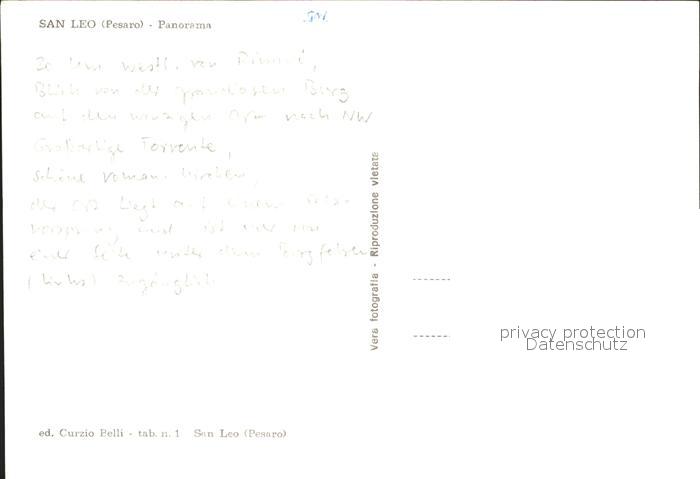 SAN LEO (Pesaro) - Panorama
30 km westl. von Rimini,
Blick von der grandiosen Burg
auf den winzigen Ort nach NW
Großartige Torrente,
schöne roman. Kirchen,
der Ort liegt auf einem Fels-
vorsprung und ist nur von
einer Seite unter dem Burgfelsen
(links) zugänglich
Vera fotografia - Riproduzione vietata
privacy protection
Datenschutz
ed. Curzio Belli - tab. n. 1 San Leo (Pesaro)